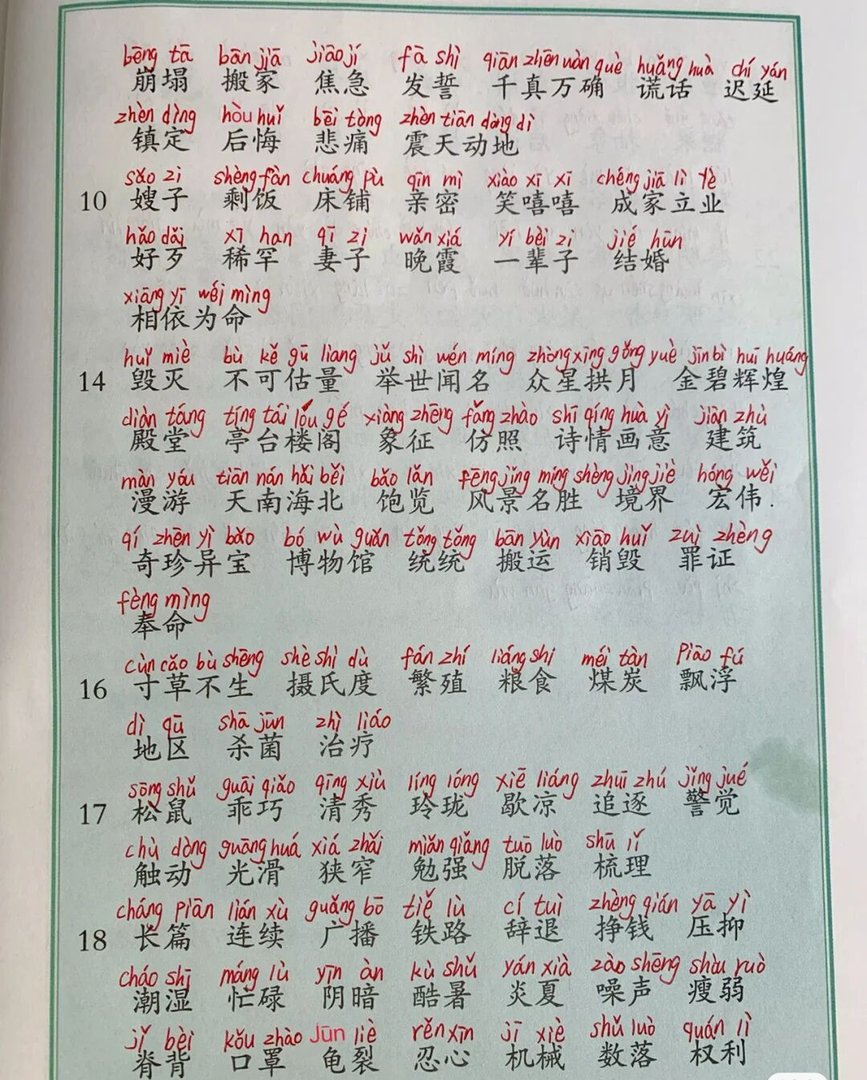 bēng tā bān jiā jiāo jí fā shì qiān zhēn wàn què huǎng huà chí yán
崩塌 搬家 焦急 发誓 千真万确 谎话 迟延
zhèn dìng hòu huǐ bēi tòng zhèn tiān dòng dì
镇定 后悔 悲痛 震天动地
sǎo zi shèng fàn chuáng pù qīn mì xiào xī xī chéng jiā lì yè
10 嫂子 剩饭 床铺 亲密 笑嘻嘻 成家立业
hǎo dǎi xī han qī zi wǎn xiá yí bèi zi jié hūn
好歹 稀罕 妻子 晚霞 一辈子 结婚
xiāng yī wéi mìng
相依为命
huǐ miè bù kě gū liang jǔ shì wén míng zhòng xīng gǒng yuè jīn bì huī huáng
14 毁灭 不可估量 举世闻名 众星拱月 金碧辉煌
diàn táng tíng tái lóu gé xiàng zhēng fǎng zhào shī qíng huà yì jiàn zhù
殿堂 亭台楼阁 象征 仿照 诗情画意 建筑
màn yóu tiān nán hǎi běi bǎo lǎn fēng jǐng míng shèng jìng jiè hóng wěi
漫游 天南海北 饱览 风景名胜 境界 宏伟.
qí zhēn yì bǎo bó wù guǎn tǒng tǒng bān yùn xiāo huǐ zuì zhèng
奇珍异宝 博物馆 统统 搬运 销毁 罪证
fèng mìng
奉命
cùn cǎo bù shēng shè shì dù fán zhí liáng shi méi tàn piāo fú
16 寸草不生 摄氏度 繁殖 粮食 煤炭 飘浮
dì qū shā jūn zhì liáo
地区 杀菌 治疗
sōng shǔ guāi qiǎo qīng xiù líng lóng xiē liáng zhuī zhú jǐng jué
17 松鼠 乖巧 清秀 玲珑 歇凉 追逐 警觉
chù dòng guāng huá xiá zhǎi miǎn qiǎng tuō luò shū lǐ
触动 光滑 狭窄 勉强 脱落 梳理
cháng piān lián xù guǎng bō tiě lù cí tuì zhèng qián yā yì
18 长篇 连续 广播 铁路 辞退 挣钱 压抑
cháo shī máng lù yīn àn kù shǔ yán xià zào shēng shòu ruò
潮湿 忙碌 阴暗 酷暑 炎夏 噪声 瘦弱
jǐ bèi kǒu zhào jūn liè rěn xīn jī xiè shǔ luò quán lì
脊背 口罩 龟裂 忍心 机械 数落 权利